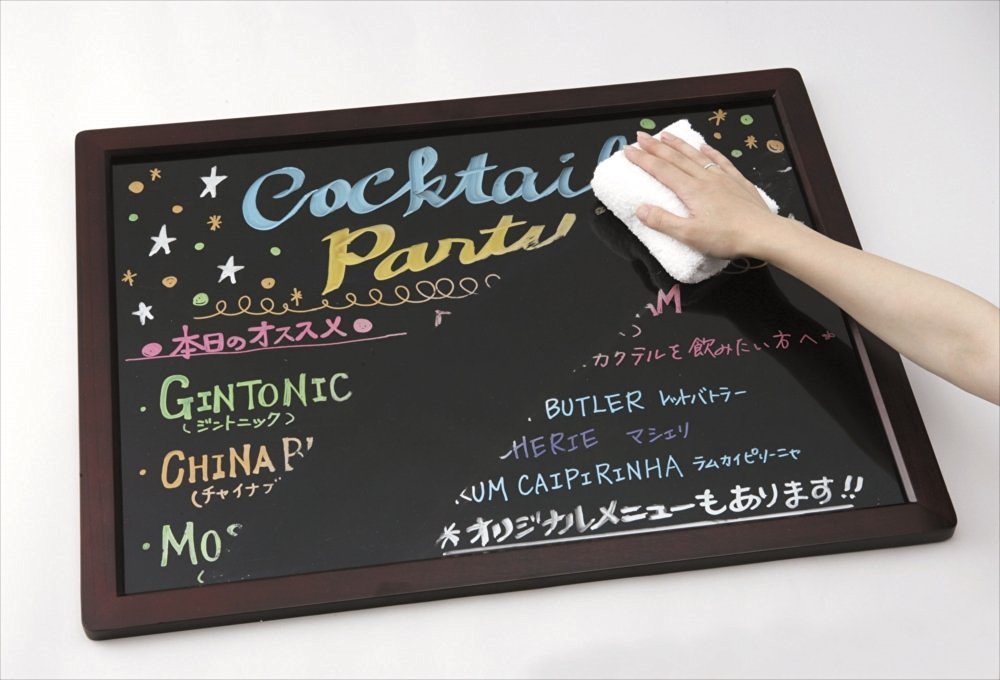 Cocktail
Party
本日のオススメ
カクテルを飲みたい方へ
・GINTONIC
(ジントニック)
BUTLER レットバトラー
・CHINA B
(チャイナブ
HERIE マシェリ
UM CAIPIRINHA ラムカイピリーニャ
・MO
*オリジナルメニューもあります!!